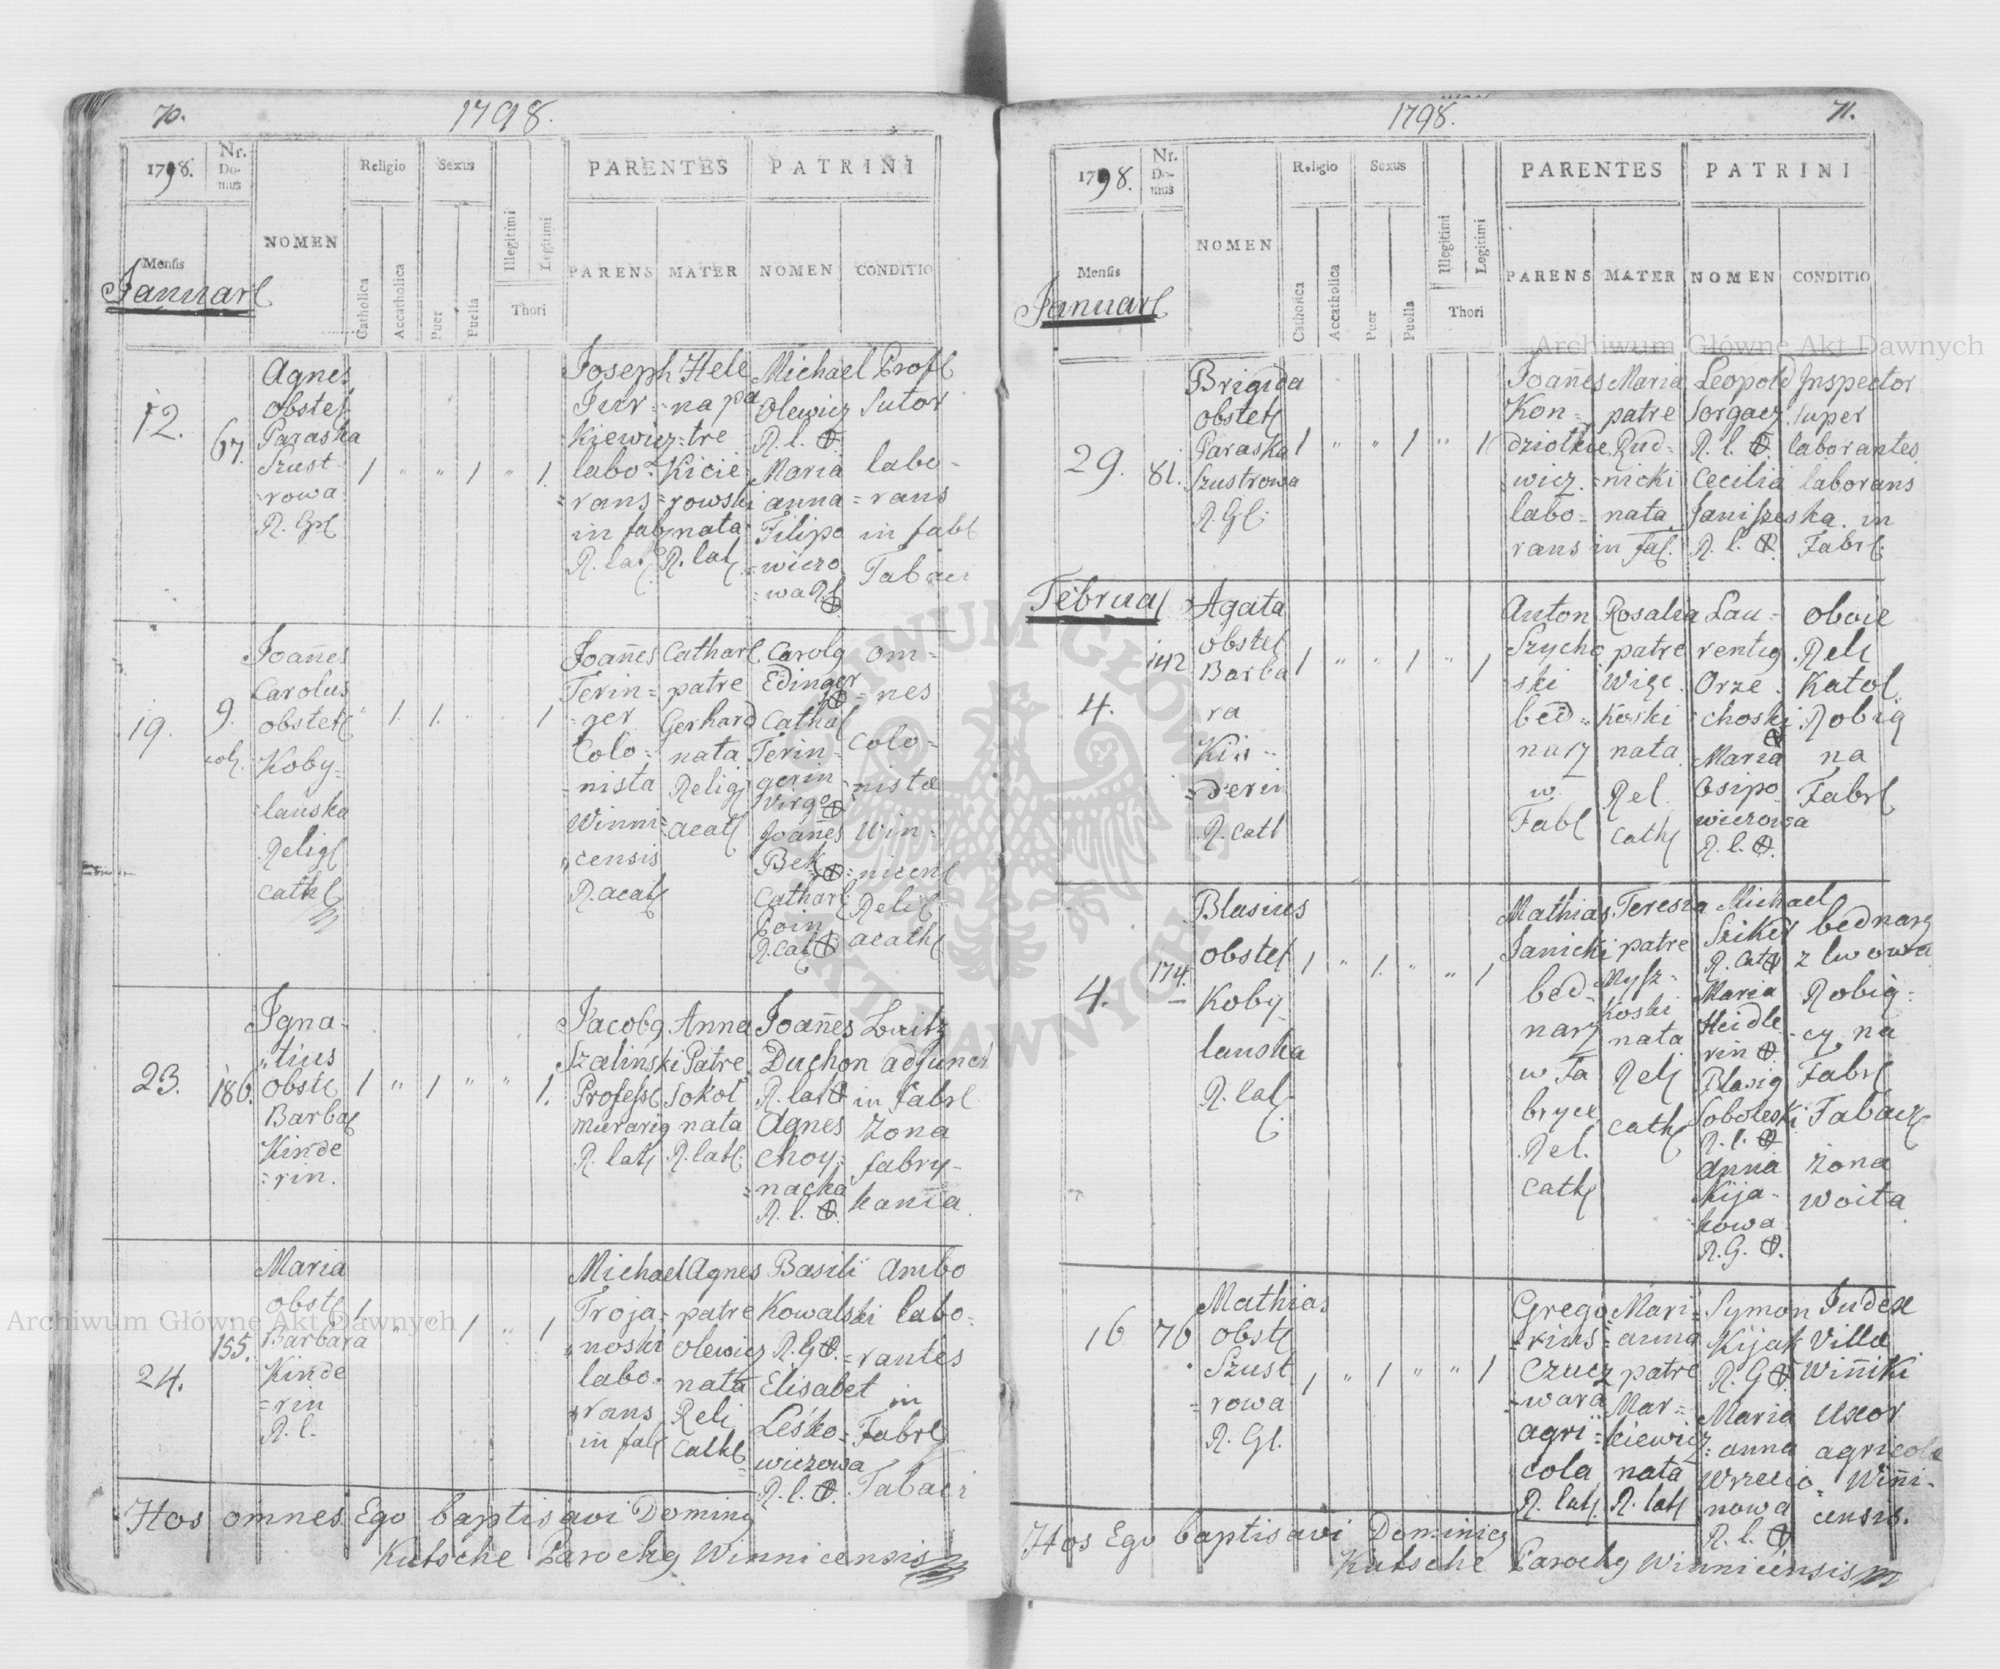 70.
1798.
1798.
Nr.
Do-
mus
NOMEN
Religio
Sexus
PARENTES
PATRINI
Mensis
Januarl
Catholica
Accatholica
Puer
Puella
Illegitimi
Legitimi
Thori
PARENS
MATER
NOMEN
CONDITIO
12.
67.
Agnes
obstet
Paraska
Szust
=rowa
R. Gl
1 " " 1 " 1.
Joseph
Jur=
Kiewicz=
labo=
=rans
in fab
R. lat
Hele
na pa
tre
Kicie
=rowski
nata
R. lat
Michael
Olewicz
R. l.
Maria
anna
Filipo
=wiczo
=wa R. l
Profl
Sutor
labo-
=rans
in fabl
Tabaci
19.
9.
col.
Joanes
Carolus
obstetl
Koby=
=lanska
Relig
cathl
" 1. 1. " " 1
Joañes
Terin=
=ger
Colo=
=nista
Winni=
"censis
R. acat
Catharl
patre
Gerhard
nata
Relig
acatl
Carolg
Edinger
Cathal
Terin=
gerin
Virgo
Joañes
Bek
Catharl
Poin
R. cat
om=
=nes
Colo=
=nistæ
Win=
=nicenl
Relig
acathl
23.
186.
Igna=
"tius
Obste
Barbal
Kinde
=rin.
1 " 1 " " 1.
Jacobg
Szalinski
Professl
murarig
R. latl
Anna
Patre
Sokol
nata
R. latl.
Joañes
Duchon
R. lat
Agnes
Choy=
=nacka
R. l.
Baitz
adjunct
in Fabrl
Zona
fabry-
kania
24.
155.
Maria
obstl
Barbara
Kinde
=rin
R. l.
1 " " 1 " 1
Michael
Troja=
"noski
labo=
rans
in fabl
Agnes
patre
Olewicz
nata
Reli
Cathl
Basili
Kowalski
R. G
Elisabet
Leśko=
wiczowa
R. l.
Ambo
labo=
=rantes
in
Fabrl
Tabaci
Hos omnes Ego baptisavi Doming
Kutsche Parochg Winnicensis
1798.
71.
1798.
Nr.
Do-
mus
NOMEN
Religio
Sexus
PARENTES
PATRINI
Mensis
Januarl
Catholica
Accatholica
Puer
Puella
Illegitimi
Legitimi
Thori
PARENS
MATER
NOMEN
CONDITIO
29.
81.
Brigida
obstetl
Paraska
Szustrowa
R. Gl.
1 " " 1 " 1
Joañes
Kon=
dziolkie
wicz.
labo=
rans in fal.
Maria
patre
Rud=
=nicki
nata
Leopold
Sorgacz
R. l.
Cecilia
Janiszeska
R. l.
Inspector
super
laborantes
laborans
in
Fabrl.
Februal
4.
142
Agata
obstel
Barba
ra
Kin=
=derin
R. catl
1 " " 1 " 1
Anton
Szycho
ski
bed=
narz
w.
Fabl
Rosalia
patre
Więc
Koski
nata
Rel.
Cathl
Lau=
rentig
Orze
choski
Maria
Osipo
wiczowa
R. l.
oboie
Reli
Katol
Robig
na
Fabrl
4.
174.
Blasius
obstel
Koby
lanska
R. cal.
1 " 1. " " 1
Mathias
Janicki
bed=
narz
w Fa
bryce
Rel.
Cathl
Teresia
patre
Mysz=
Koski
nata
Rell
cathl
Michael
Szikel
R. cat
Maria
Heidle
rin
Blasig
Soboleski
R. l.
anna
Kija-
kowa
R. G.
bednarz
z lwowa
Robig=
=cy na
Fabrl
Tabacz
Zona
Woita
16
76
Mathias
obstl
Szust
=rowa
R. Gl.
1 " 1 " " 1
Grego
=rius
Czucz
=wara
agri=
cola
R. latl.
Mari=
=anna
patre
Mar=
kiewicz
nata
R. latl
Symon
Kijak
R. G
Maria
=anna
Wrzecio=
nowa
R. l.
Judex
Villæ
Winiki
Uxor
agricola
Wini-
censis.
Hos Ego baptisavi Dominicg
Kutsche Parochg Winnicensis
Archiwum Główne Akt Dawnych
Archiwum Główne Akt Dawnych
ARCHIWUM GŁÓWNE AKT DAWNYCH